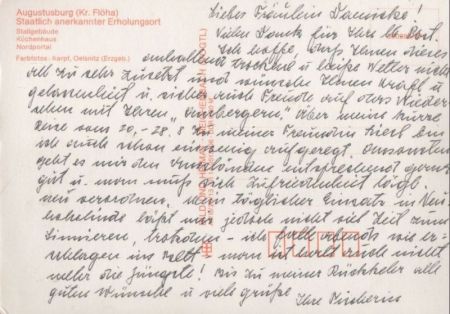 Augustusburg (Kr. Flöha)
Staatlich anerkannter Erholungsort
Stallgebäude
Küchenhaus
Nordportal
Farbfotos: Karpf, Oelsnitz (Erzgeb.)
Liebes Fräulein
Vielen Dank für Ihre lb. Post.
Ich hoffe, daß Ihnen dieses
anhaltend trockene u. heiße Wetter nicht
all zu sehr zusetzt und wünsche Ihnen Kraft u.
Gelassenheit u. sicher auch Freude auf das Wieder-
sehen mit Ihren Über meine kurze
Reise vom 20.-28.8 zu meiner Freundin bin
ich auch schon einwenig aufgeregt. Ansonsten
geht es mir den Umständen entsprechend ganz
gut u. man muß sich Zufriedenheit tägl.
neu verordnen. Mein täglicher Einsatz in
läßt mir jedoch nicht viel Zeit zum
Simieren, trotzdem - ich falle abends wie er-
schlagen ins Bett - man ist halt auch nicht
mehr die Jüngste! Bis zu meiner Rückkehr alle
guten Wünsche u. viele Grüße
Ihre